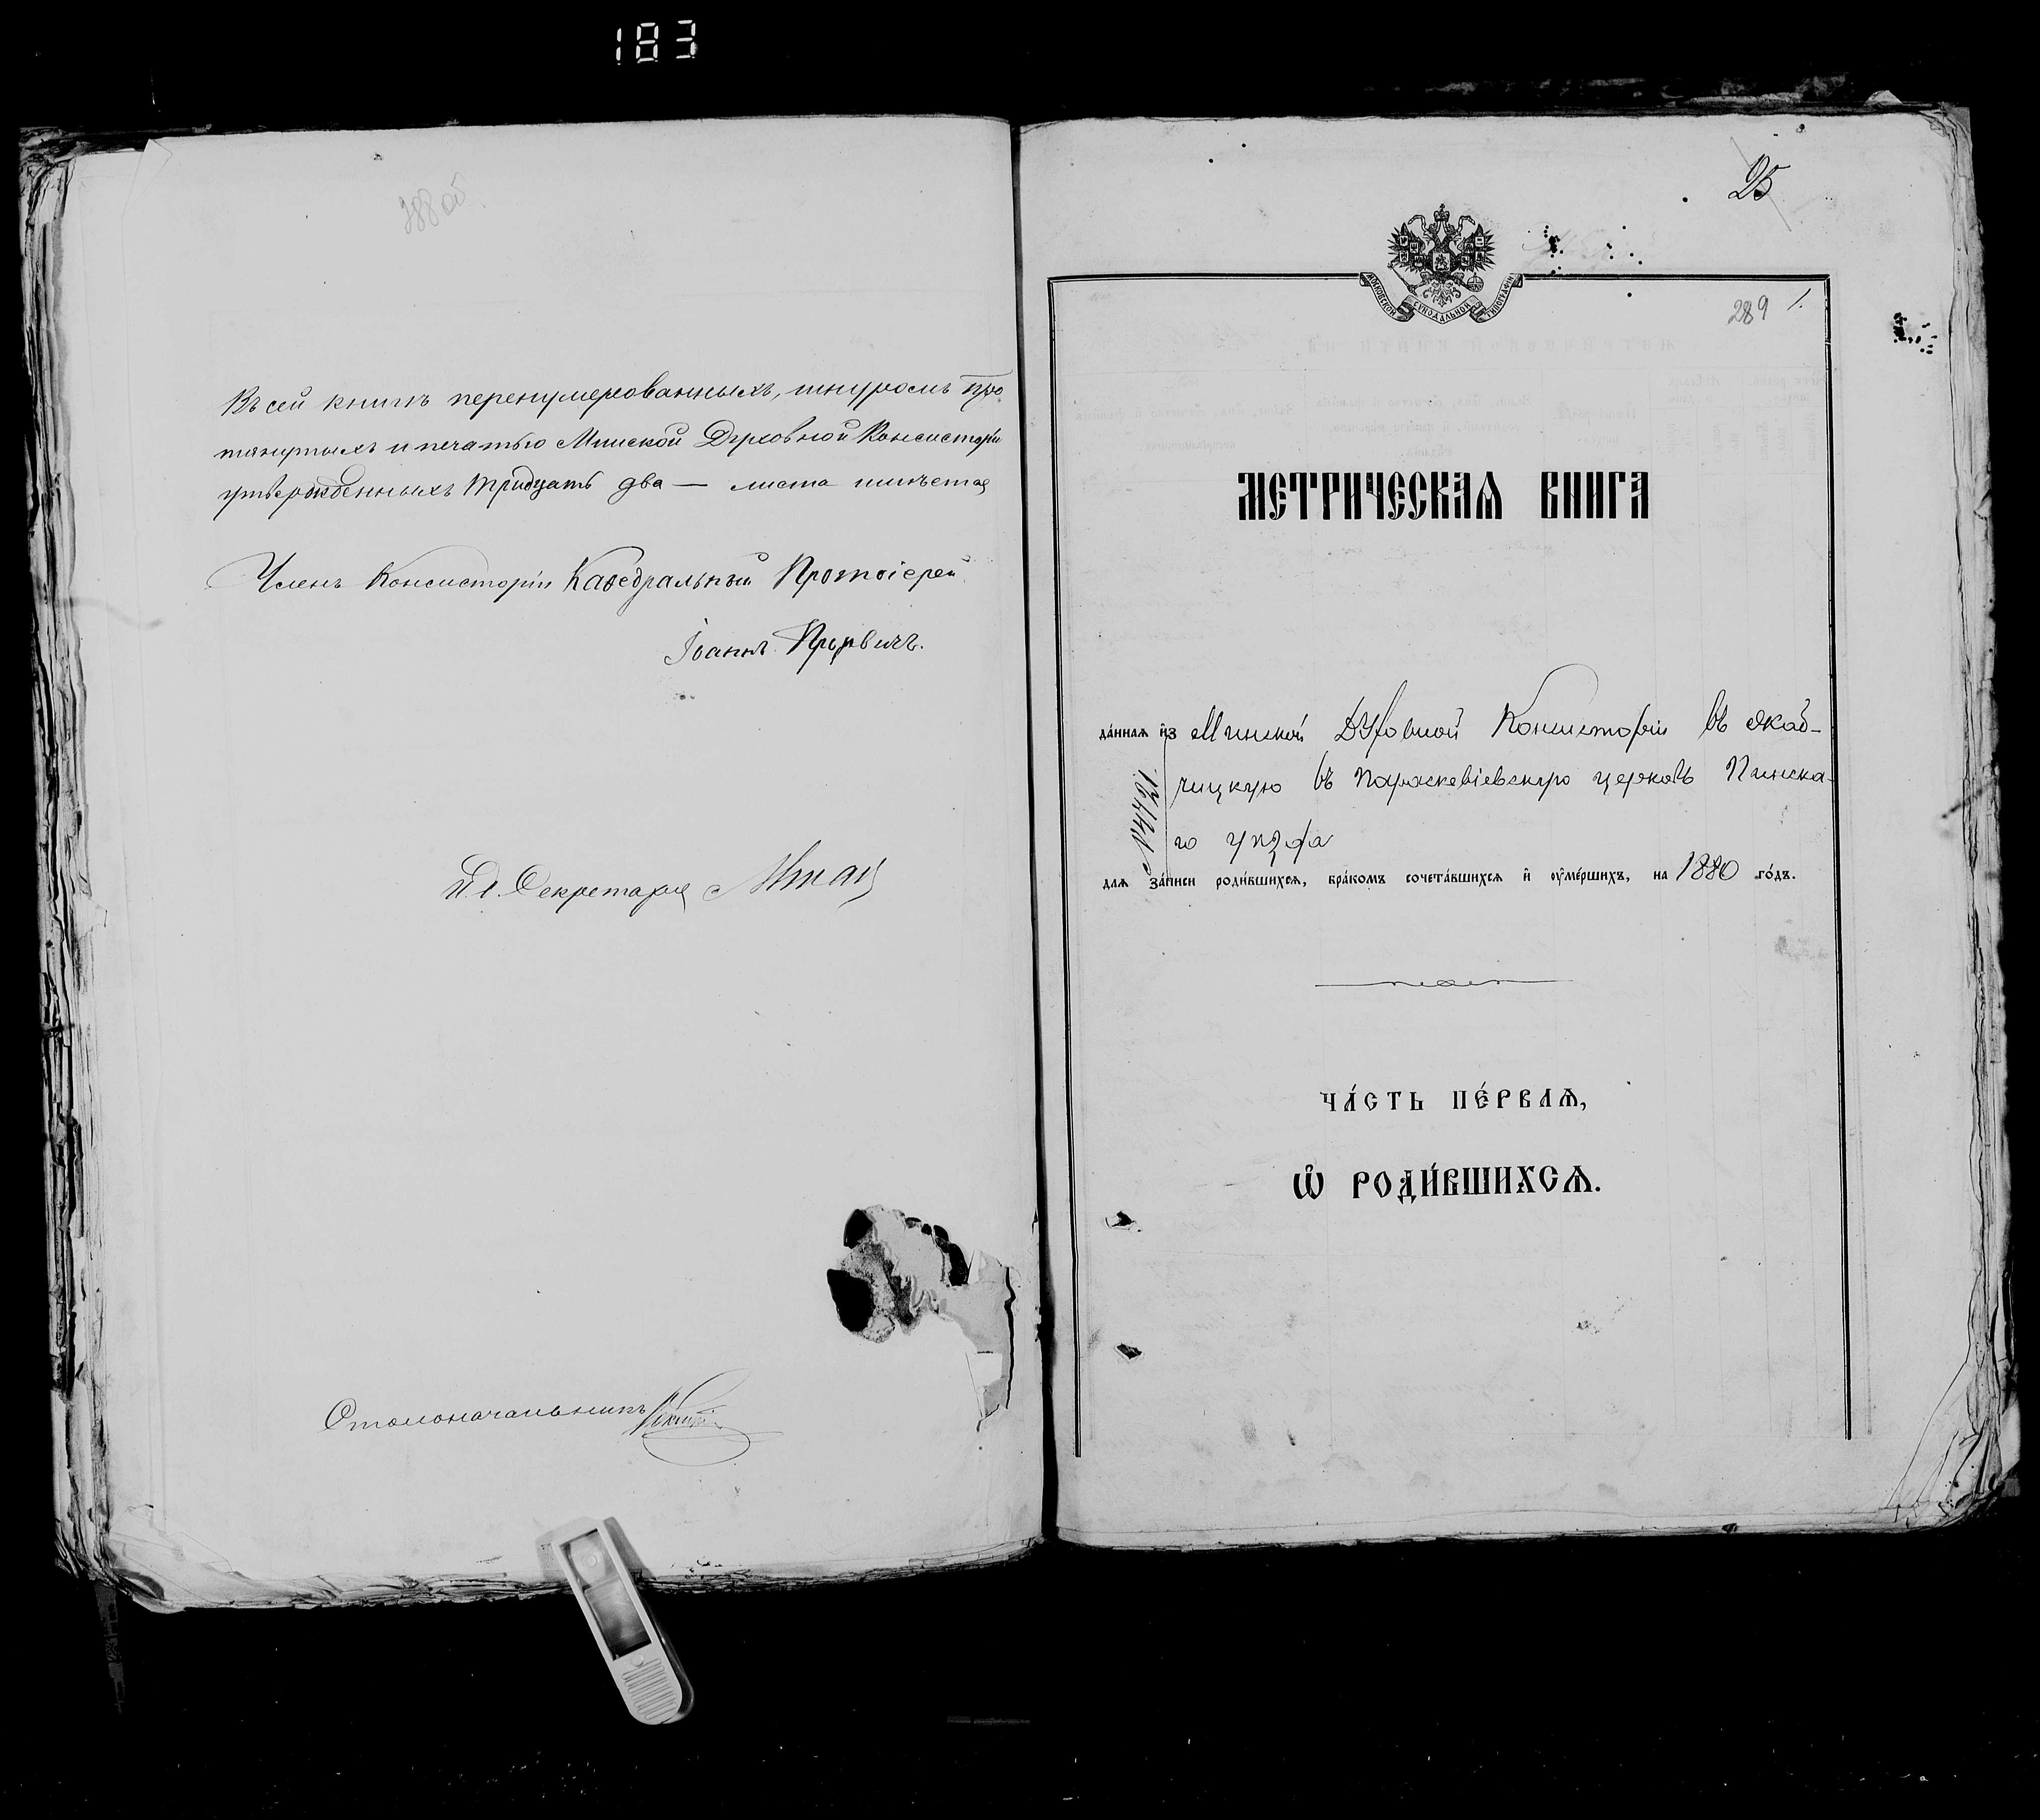 183
288 об
Въ сей книгѣ перенумерованныхъ, шнуромъ про
тянутыхъ и печатью Минской Духовной Консисторіи
утвержденныхъ тридцать два — листа имѣется
Членъ Консисторіи Каѳедральный Протоіерей
Іоаннъ
И. д. Секретаря
Столоначальникъ
25
МОСКОВСКОЙ СѴНОДАЛЬНОЙ ТИПОГРАФІИ
289 1.
МЕТРИЧЕСКАѦ КНИГА
да́ннаѧ и҆з Минской Духовной Консисторіи въ Охаб-
чицкую въ Параскевіевскую церковь Пинска-
го уѣзда
№
длѧ за́писи роди́вшихсѧ, бра́комъ сочета́вшихсѧ и҆ ᲂу҆ме́ршихъ, на 1880 го́дъ.
ЧА́СТЬ ПЕ́РВАѦ,
Ѽ РОДИ́ВШИХСѦ.